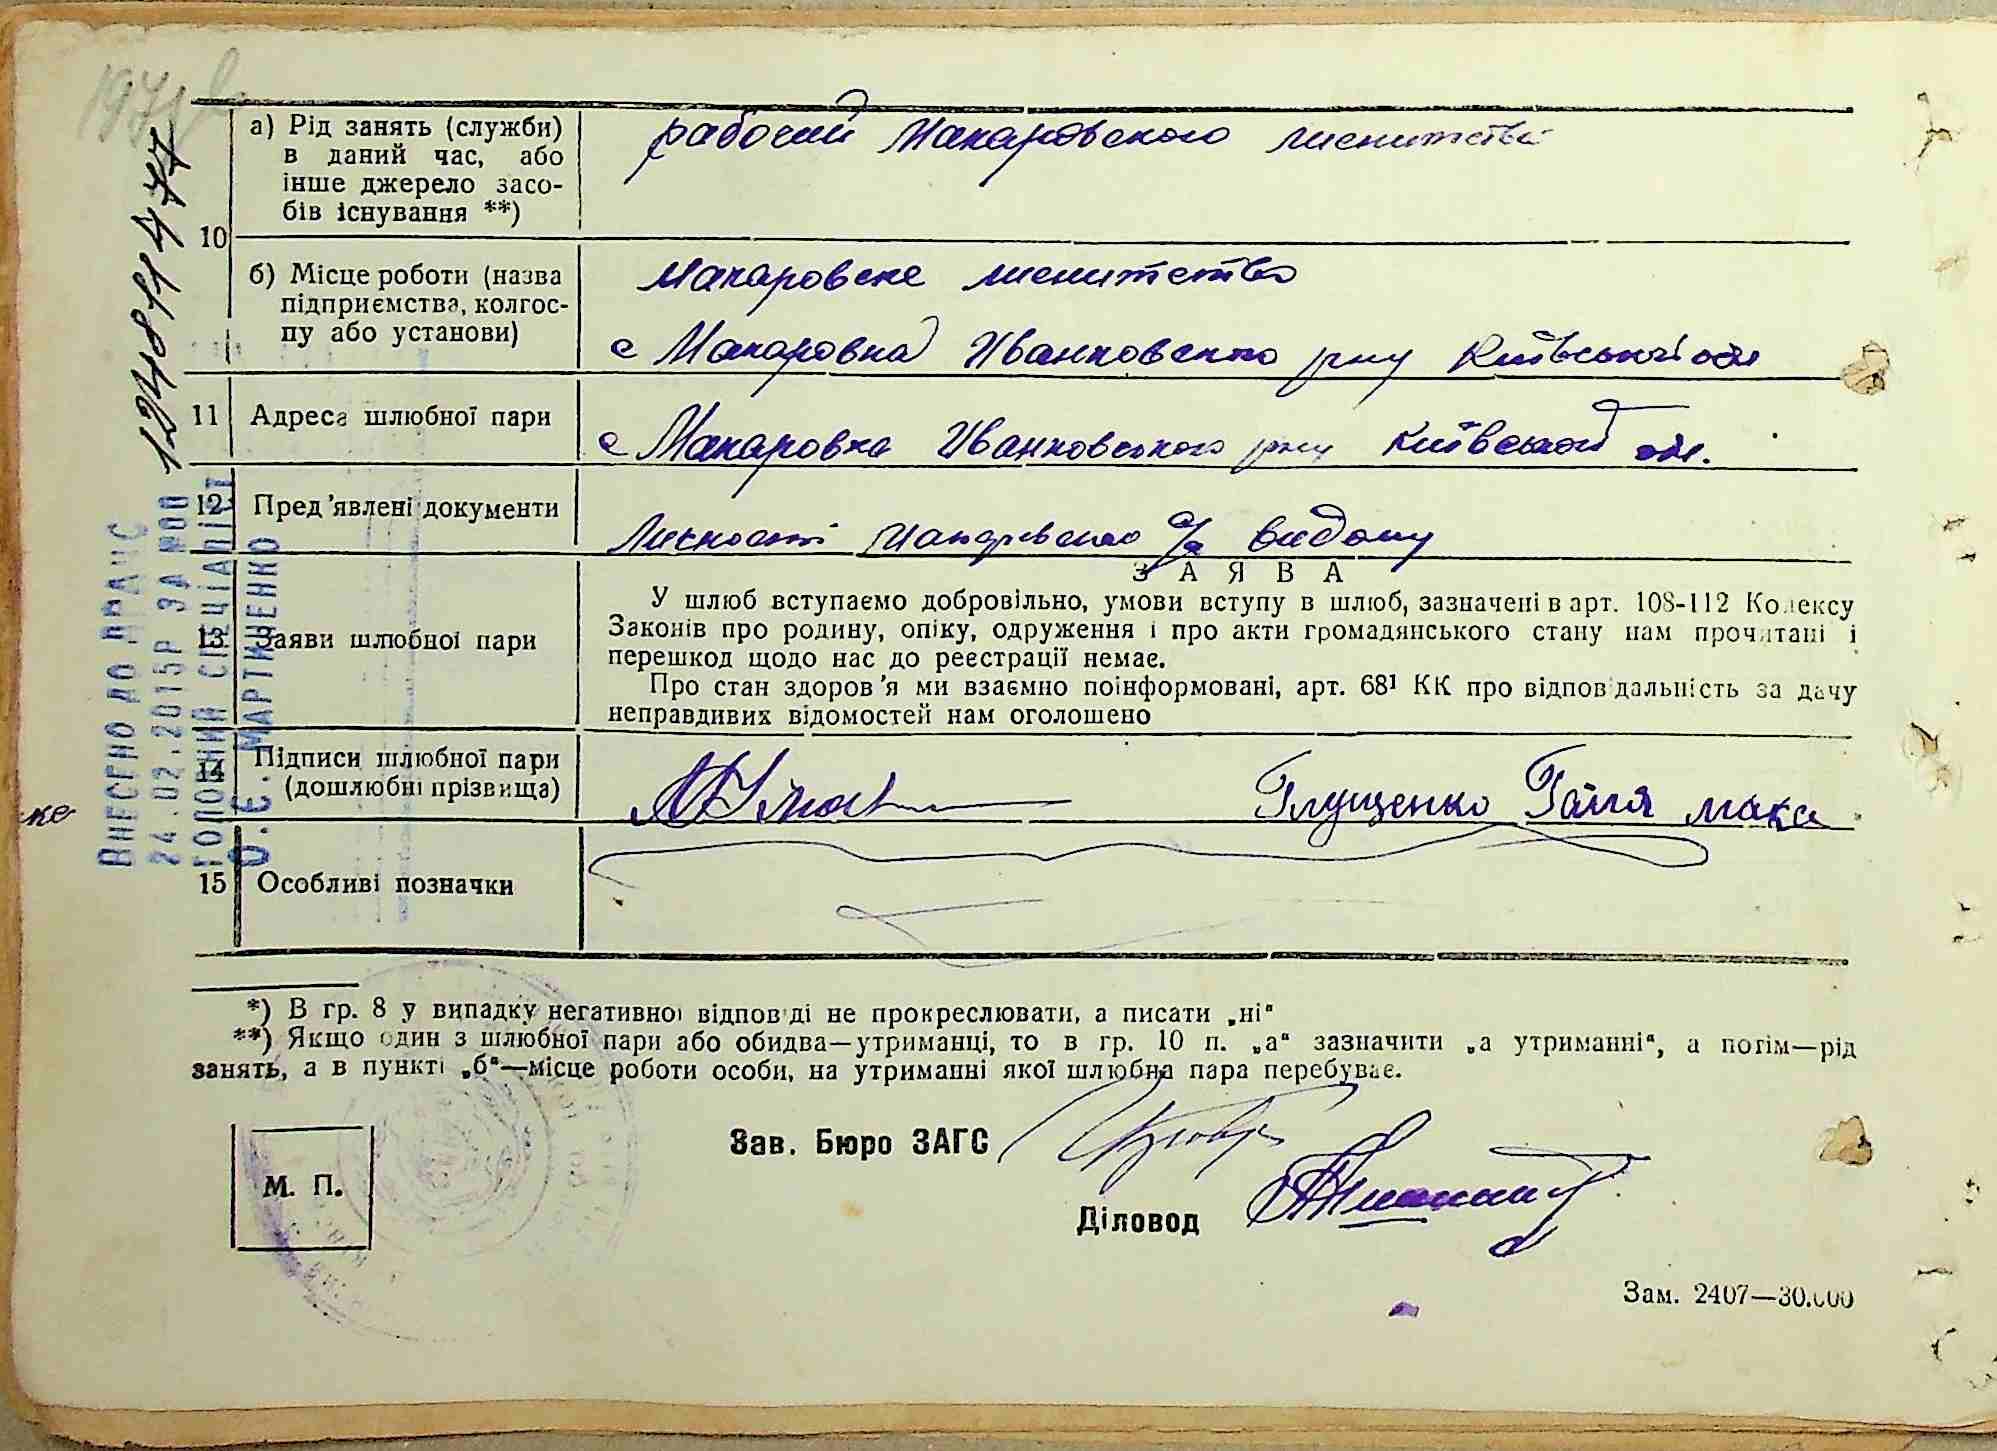 а) Рід занять (служби)
в даний час, або
інше джерело засо-
бів існування **)
рабочий Макаровского лисництва
10
б) Місце роботи (назва
підприємства, колгос-
пу або установи)
Макаровске лисництво
с Макаровка Иванковского р-ну Київської обл
11 Адреса шлюбної пари
с Макаровка Иванковського р-ну Київської обл.
12 Пред'явлені документи
Макаровского с/р
13 Заяви шлюбної пари
ЗАЯВА
У шлюб вступаємо добровільно, умови вступу в шлюб, зазначені в арт. 108-112 Кодексу
Законів про родину, опіку, одруження і про акти громадянського стану нам прочитані і
перешкод щодо нас до реєстрації немає.
Про стан здоров'я ми взаємно поінформовані, арт. 68¹ КК про відповідальність за дачу
неправдивих відомостей нам оголошено
14 Підписи шлюбної пари
(дошлюбні прізвища)
Глущенко Галя мака
15 Особливі позначки
*) В гр. 8 у випадку негативної відповіді не прокреслювати, а писати „ні"
**) Якщо один з шлюбної пари або обидва—утриманці, то в гр. 10 п. „а" зазначити „а утриманні", а потім—рід
занять, а в пункті „б"—місце роботи особи, на утриманні якої шлюбна пара перебуває.
Зав. Бюро ЗАГС
М. П.
Діловод
Зам. 2407—30.000
ВНЕСЕНО ДО ДРАЦС
24.02.2015Р ЗА №00 124811477
ГОЛОВНИЙ СПЕЦІАЛІСТ
О.Є. МАРТИНЕНКО